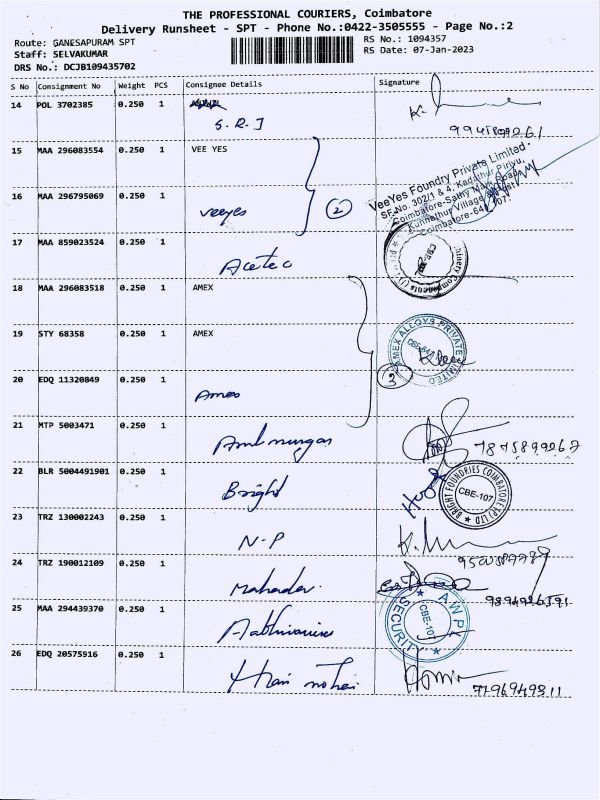 THE PROFESSIONAL COURIERS, Coimbatore
Delivery Runsheet - SPT - Phone No.:0422-3505555 - Page No.:2
Route: GANESAPURAM SPT
RS No.: 1094357
Staff: SELVAKUMAR
RS Date: 07-Jan-2023
DRS No.: DCJB109435702
S No Consignment No Weight PCS Consignee Details Signature
14 POL 3702385 0.250 1
S.R.J
15 MAA 296083554 0.250 1 VEE YES
VeeYes Foundry Private Limited.
SF.No. 302/1 & 4, Kadathur Pirivu,
Coimbatore-Sathy Main Road,
Kunnathur Village
Coimbatore-641 107.
16 MAA 296795069 0.250 1
veeyes 2
17 MAA 859023524 0.250 1
18 MAA 296083518 0.250 1 AMEX
19 STY 68358 0.250 1 AMEX
AMEX ALLOYS PRIVATE LIMITED
20 EDQ 11320849 0.250 1
3
21 MTP 5003471 0.250 1
22 BLR 5004491901 0.250 1
Bright
BRIGHT FOUNDRIES COIMBATORE (P) LTD
CBE-107
23 TRZ 130002243 0.250 1
N-P
24 TRZ 190012109 0.250 1
Mahadev
25 MAA 294439370 0.250 1
SECURITY
CBE-107
26 EDQ 20575916 0.250 1